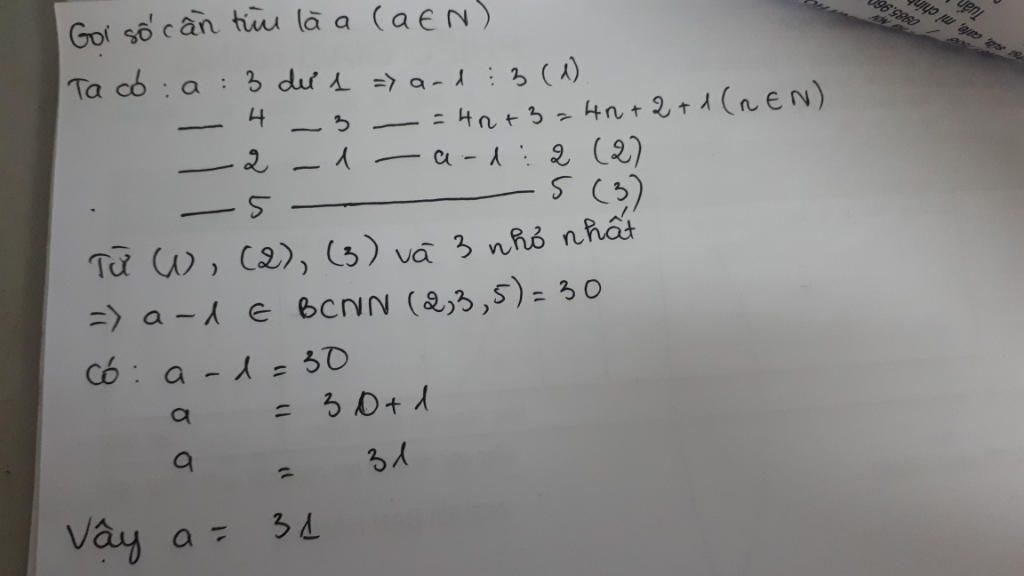 Gọi số cần tìm là a (a ∈ N)
Ta có : a : 3 dư 1 => a - 1 ⋮ 3 (1)
— 4 — 3 — = 4n + 3 = 4n + 2 + 1 (n ∈ N)
— 2 — 1 — a - 1 ⋮ 2 (2)
— 5 — 5 (3)
Từ (1), (2), (3) và 3 nhỏ nhất
=> a - 1 ∈ BCNN (2,3,5) = 30
Có : a - 1 = 30
a = 30 + 1
a = 31
Vậy a = 31